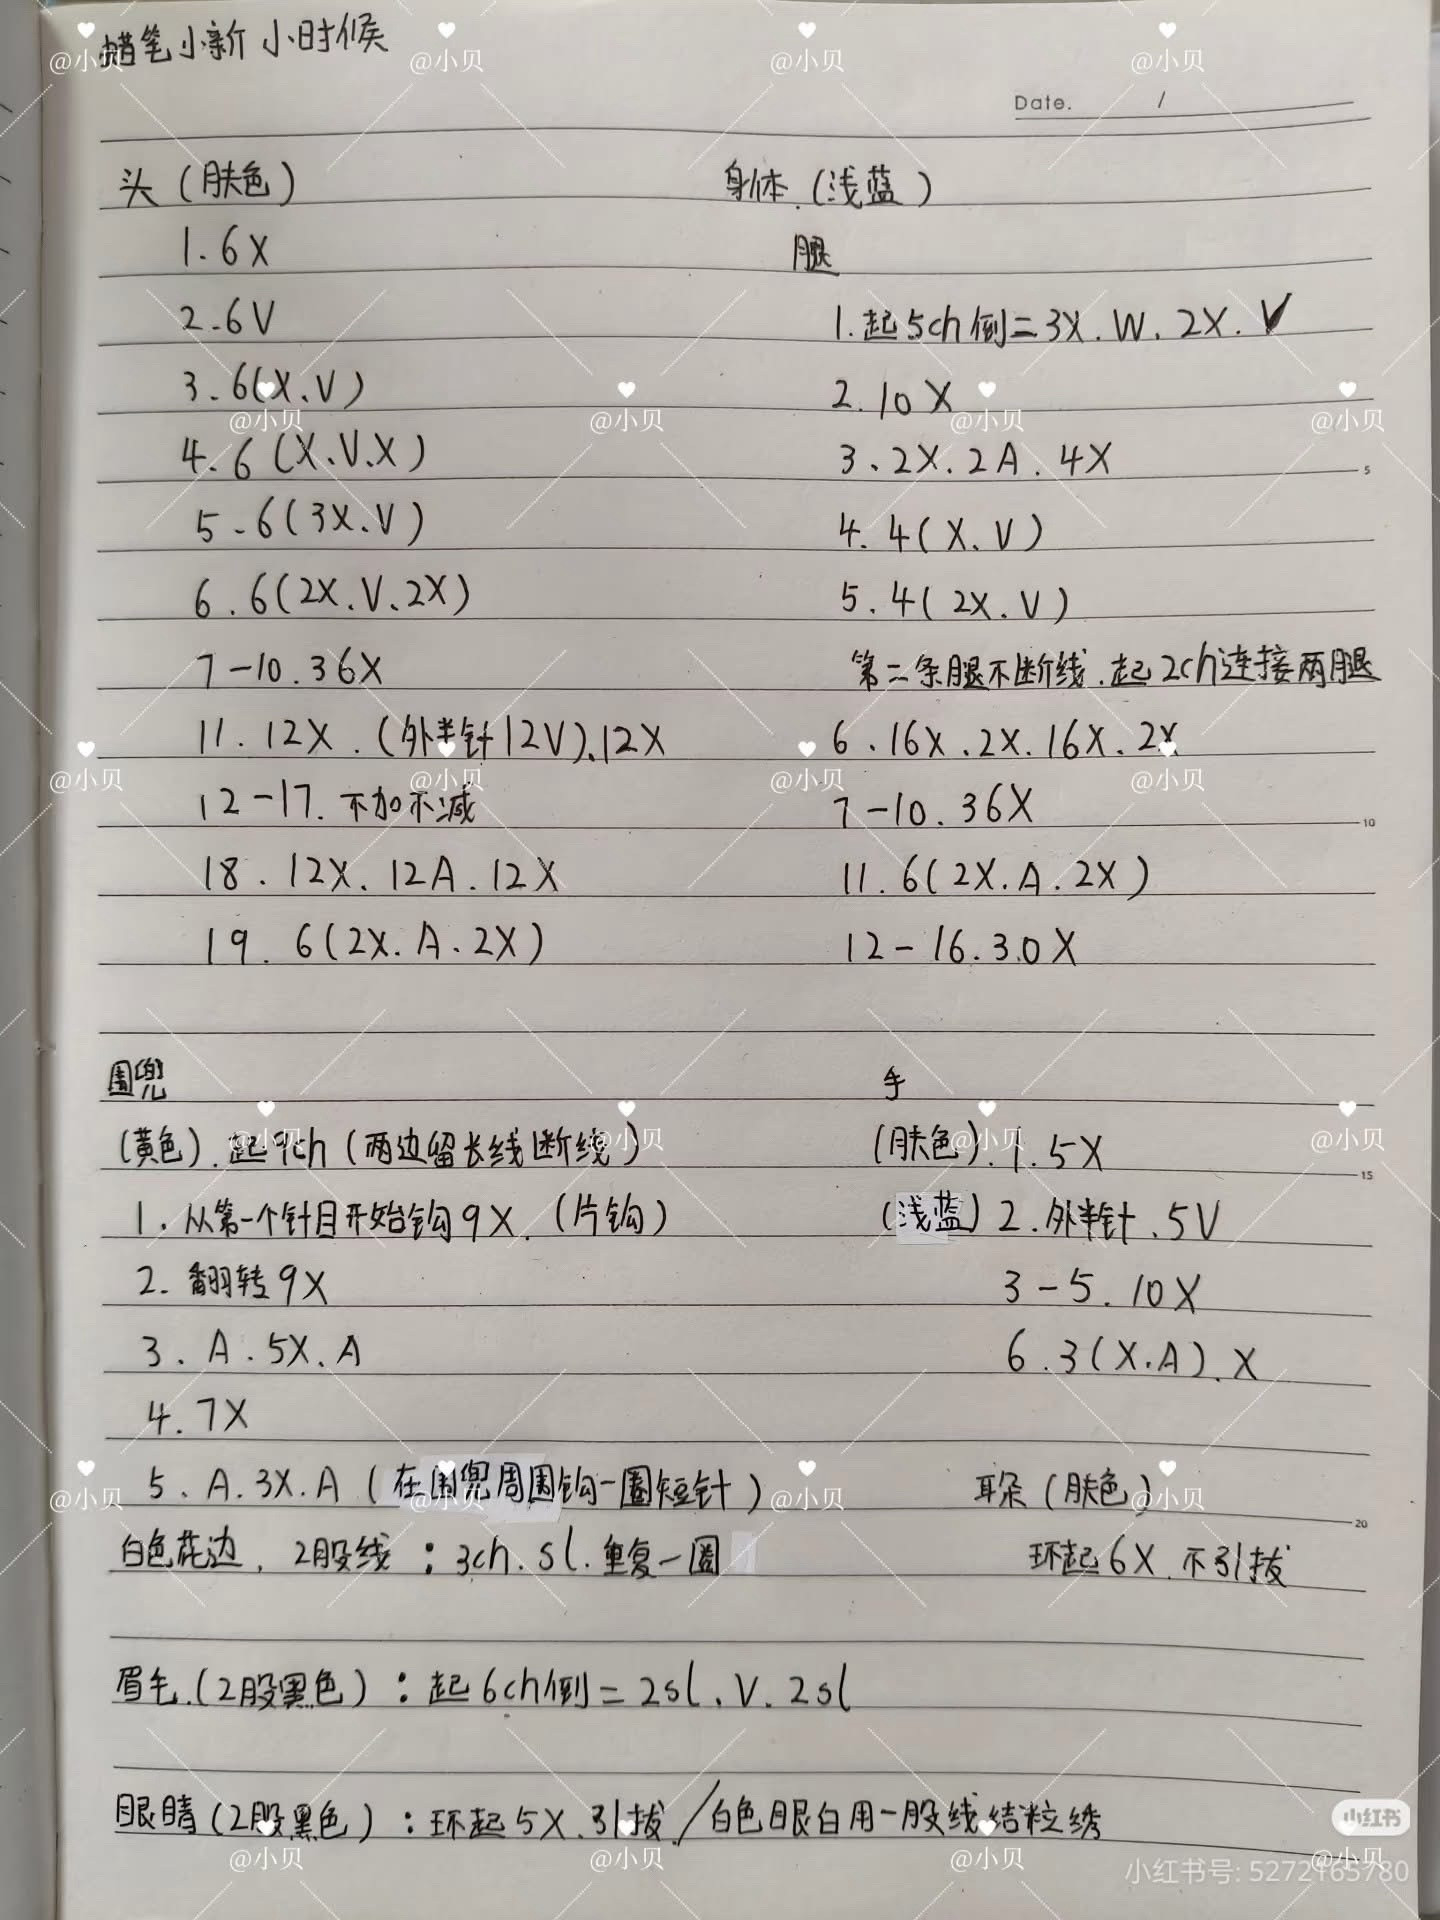 蜡笔小新 小时候
Date. /
头（肤色）
1. 6X
2. 6V
3. 6(X.V)
4. 6(X.V.X)
5. 6(3X.V)
6. 6(2X.V.2X)
7-10. 36X
11. 12X.(外半针12V).12X
12-17. 不加不减
18. 12X. 12A. 12X
19. 6(2X. A. 2X)
身体.（浅蓝）
腿
1. 起5ch倒二3X. W. 2X. V
2. 10X
3. 2X. 2A. 4X
4. 4(X. V)
5. 4(2X. V)
第二条腿不断线.起2ch连接两腿
6. 16X. 2X. 16X. 2X
7-10. 36X
11. 6(2X. A. 2X)
12-16. 30X
围兜
(黄色). 起9ch（两边留长线断线）
1. 从第一个针目开始钩9X.（片钩）
2. 翻转9X
3. A. 5X. A
4. 7X
5. A. 3X. A（在围兜周围钩一圈短针）
白色花边, 2股线：3ch. sl. 重复一圈
手
(肤色). 1. 5X
(浅蓝) 2. 外半针. 5V
3-5. 10X
6. 3(X.A). X
耳朵（肤色）
环起6X. 不引拔
眉毛.(2股黑色)：起6ch倒二2sl. V. 2sl
眼睛(2股黑色)：环起5X. 引拔./白色眼白用一股线结粒绣
5
10
15
20
@小贝
@小贝
@小贝
@小贝
@小贝
@小贝
@小贝
@小贝
@小贝
@小贝
@小贝
@小贝
@小贝
@小贝
@小贝
@小贝
@小贝
@小贝
@小贝
@小贝
@小贝
@小贝
@小贝
@小贝
小红书
小红书号: 5272165780